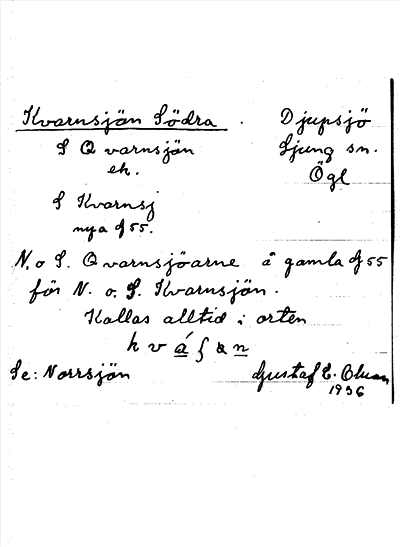 Kvarnsjön Södra . Djupsjö
S Qvarnsjön Ljung sn.
ek. Ögl
S Kvarnsj
nya G55.
N. o S. Qvarnsjöarne å gamla G55
för N. o. S. Kvarnsjön.
Kallas alltid i orten
h v á ʃ n
Se: Norrsjön Gustaf E.
1936